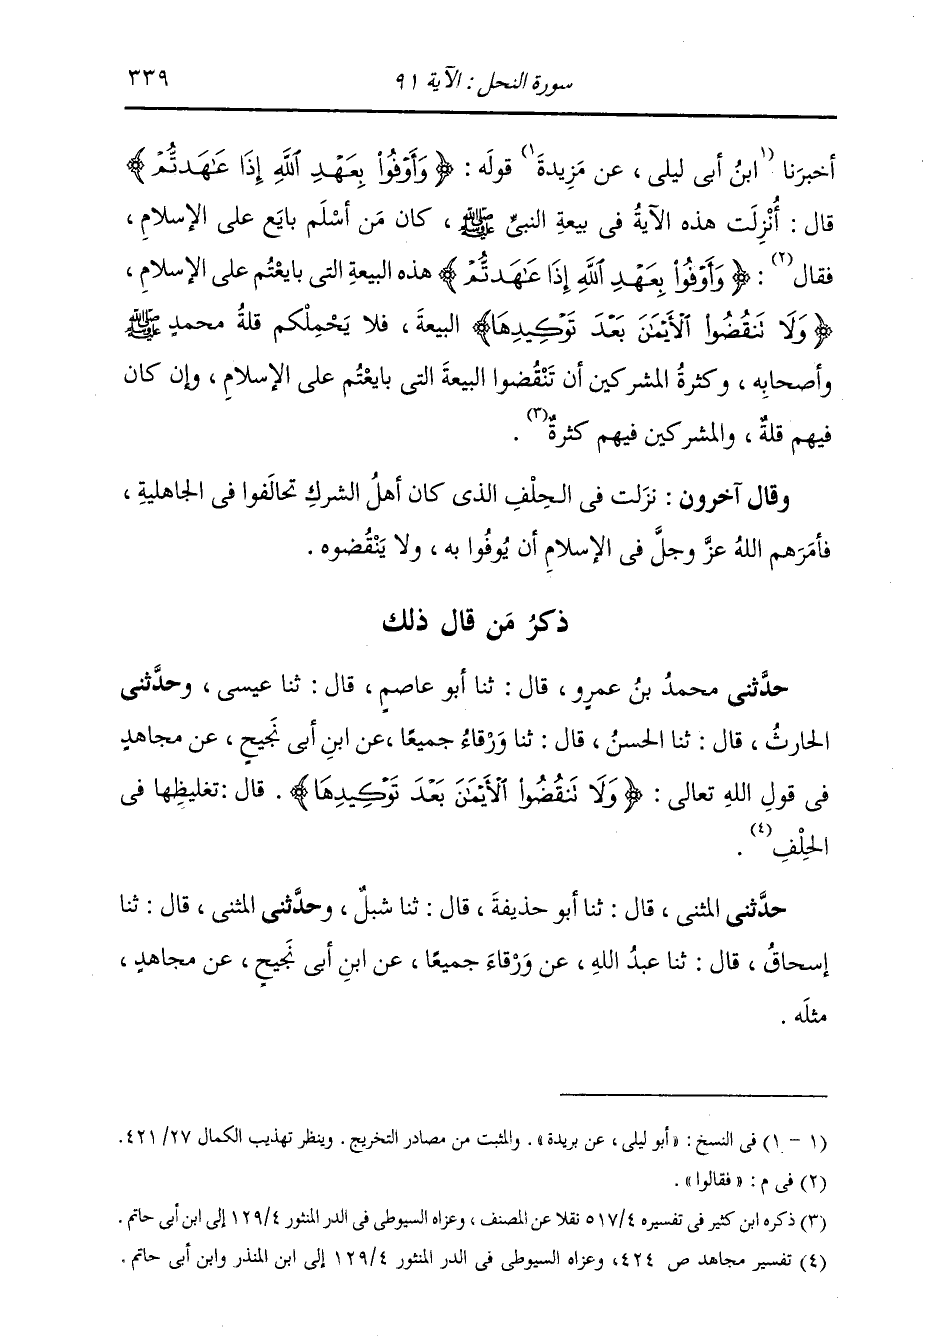 سورة النحل : الآية ٩١ ٣٣٩
أخبرَنا ⁽¹ابنُ أبى ليلى ، عن مَزِيدةَ¹⁾ قولَه : ﴿ وَأَوْفُوا۟ بِعَهْدِ ٱللَّهِ إِذَا عَـٰهَدتُّمْ ﴾
قال : أُنْزِلَت هذه الآيةُ فى بيعةِ النبىِّ ﷺ ، كان مَن أسْلَم بايَع على الإسلامِ ،
فقال⁽²⁾ : ﴿ وَأَوْفُوا۟ بِعَهْدِ ٱللَّهِ إِذَا عَـٰهَدتُّمْ ﴾ هذه البيعةِ التى بايعْتُم على الإسلامِ ،
﴿ وَلَا نَنقُضُوا۟ ٱلْأَيْمَـٰنَ بَعْدَ تَوْكِيدِهَا﴾ البيعةَ ، فلا يَحْمِلْكم قلةُ محمدٍ ﷺ
وأصحابِه ، وكثرةُ المشركين أن تَنْقُضوا البيعةَ التى بايعْتُم على الإسلامِ ، وإن كان
فيهم قلةٌ ، والمشركين فيهم كثرةٌ⁽³⁾ .
وقال آخرون : نزَلت فى الحِلْفِ الذى كان أهلُ الشركِ تحالَفوا فى الجاهليةِ ،
فأمَرَهم اللهُ عزَّ وجلَّ فى الإسلامِ أن يُوفُوا به ، ولا يَنْقُضوه .
ذكرُ مَن قال ذلك
حدَّثنى محمدُ بنُ عمرٍو ، قال : ثنا أبو عاصمٍ ، قال : ثنا عيسى ، وحدَّثنى
الحارثُ ، قال : ثنا الحسنُ ، قال : ثنا وَرْقاءُ جميعًا ،عن ابنِ أبى نَجيحٍ ، عن مجاهدٍ
فى قولِ اللهِ تعالى : ﴿ وَلَا نَنقُضُوا۟ ٱلْأَيْمَـٰنَ بَعْدَ تَوْكِيدِهَا﴾ . قال :تغليظِها فى
الحِلْفِ⁽⁴⁾ .
حدَّثنى المثنى ، قال : ثنا أبو حذيفةَ ، قال : ثنا شبلٌ ، وحدَّثنى المثنى ، قال : ثنا
إسحاقُ ، قال : ثنا عبدُ اللهِ ، عن وَرْقاءَ جميعًا ، عن ابنِ أبى نَجيحٍ ، عن مجاهدٍ ،
مثلَه .
(١ - ١) فى النسخ : «أبو ليلى ، عن بريدة» . والمثبت من مصادر التخريج . وينظر تهذيب الكمال ٢٧/ ٤٢١.
(٢) فى م : « فقالوا» .
(٣) ذكره ابن كثير فى تفسيره ٥١٧/٤ نقلا عن المصنف ، وعزاه السيوطى فى الدر المنثور ١٢٩/٤ إلى ابن أبى حاتم .
(٤) تفسير مجاهد ص ٤٢٤، وعزاه السيوطى فى الدر المنثور ١٢٩/٤ إلى ابن المنذر وابن أبى حاتم .